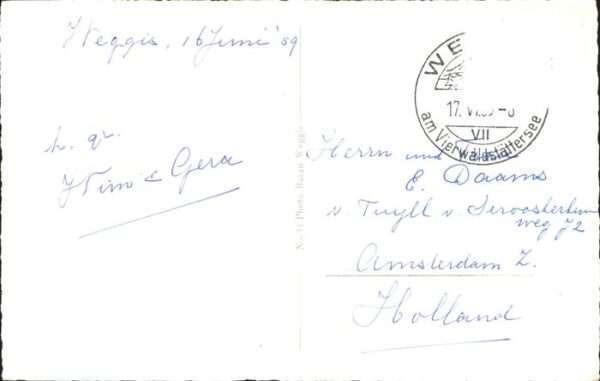 Weggis, 16 Juni '59
h. gr.
Wim & Gera
WE
17. VI.59-8
VII
am Vierwaldstättersee
Herrn und
E. Daams
v Tuyll v Serooskerken
weg 72
Amsterdam Z.
Holland